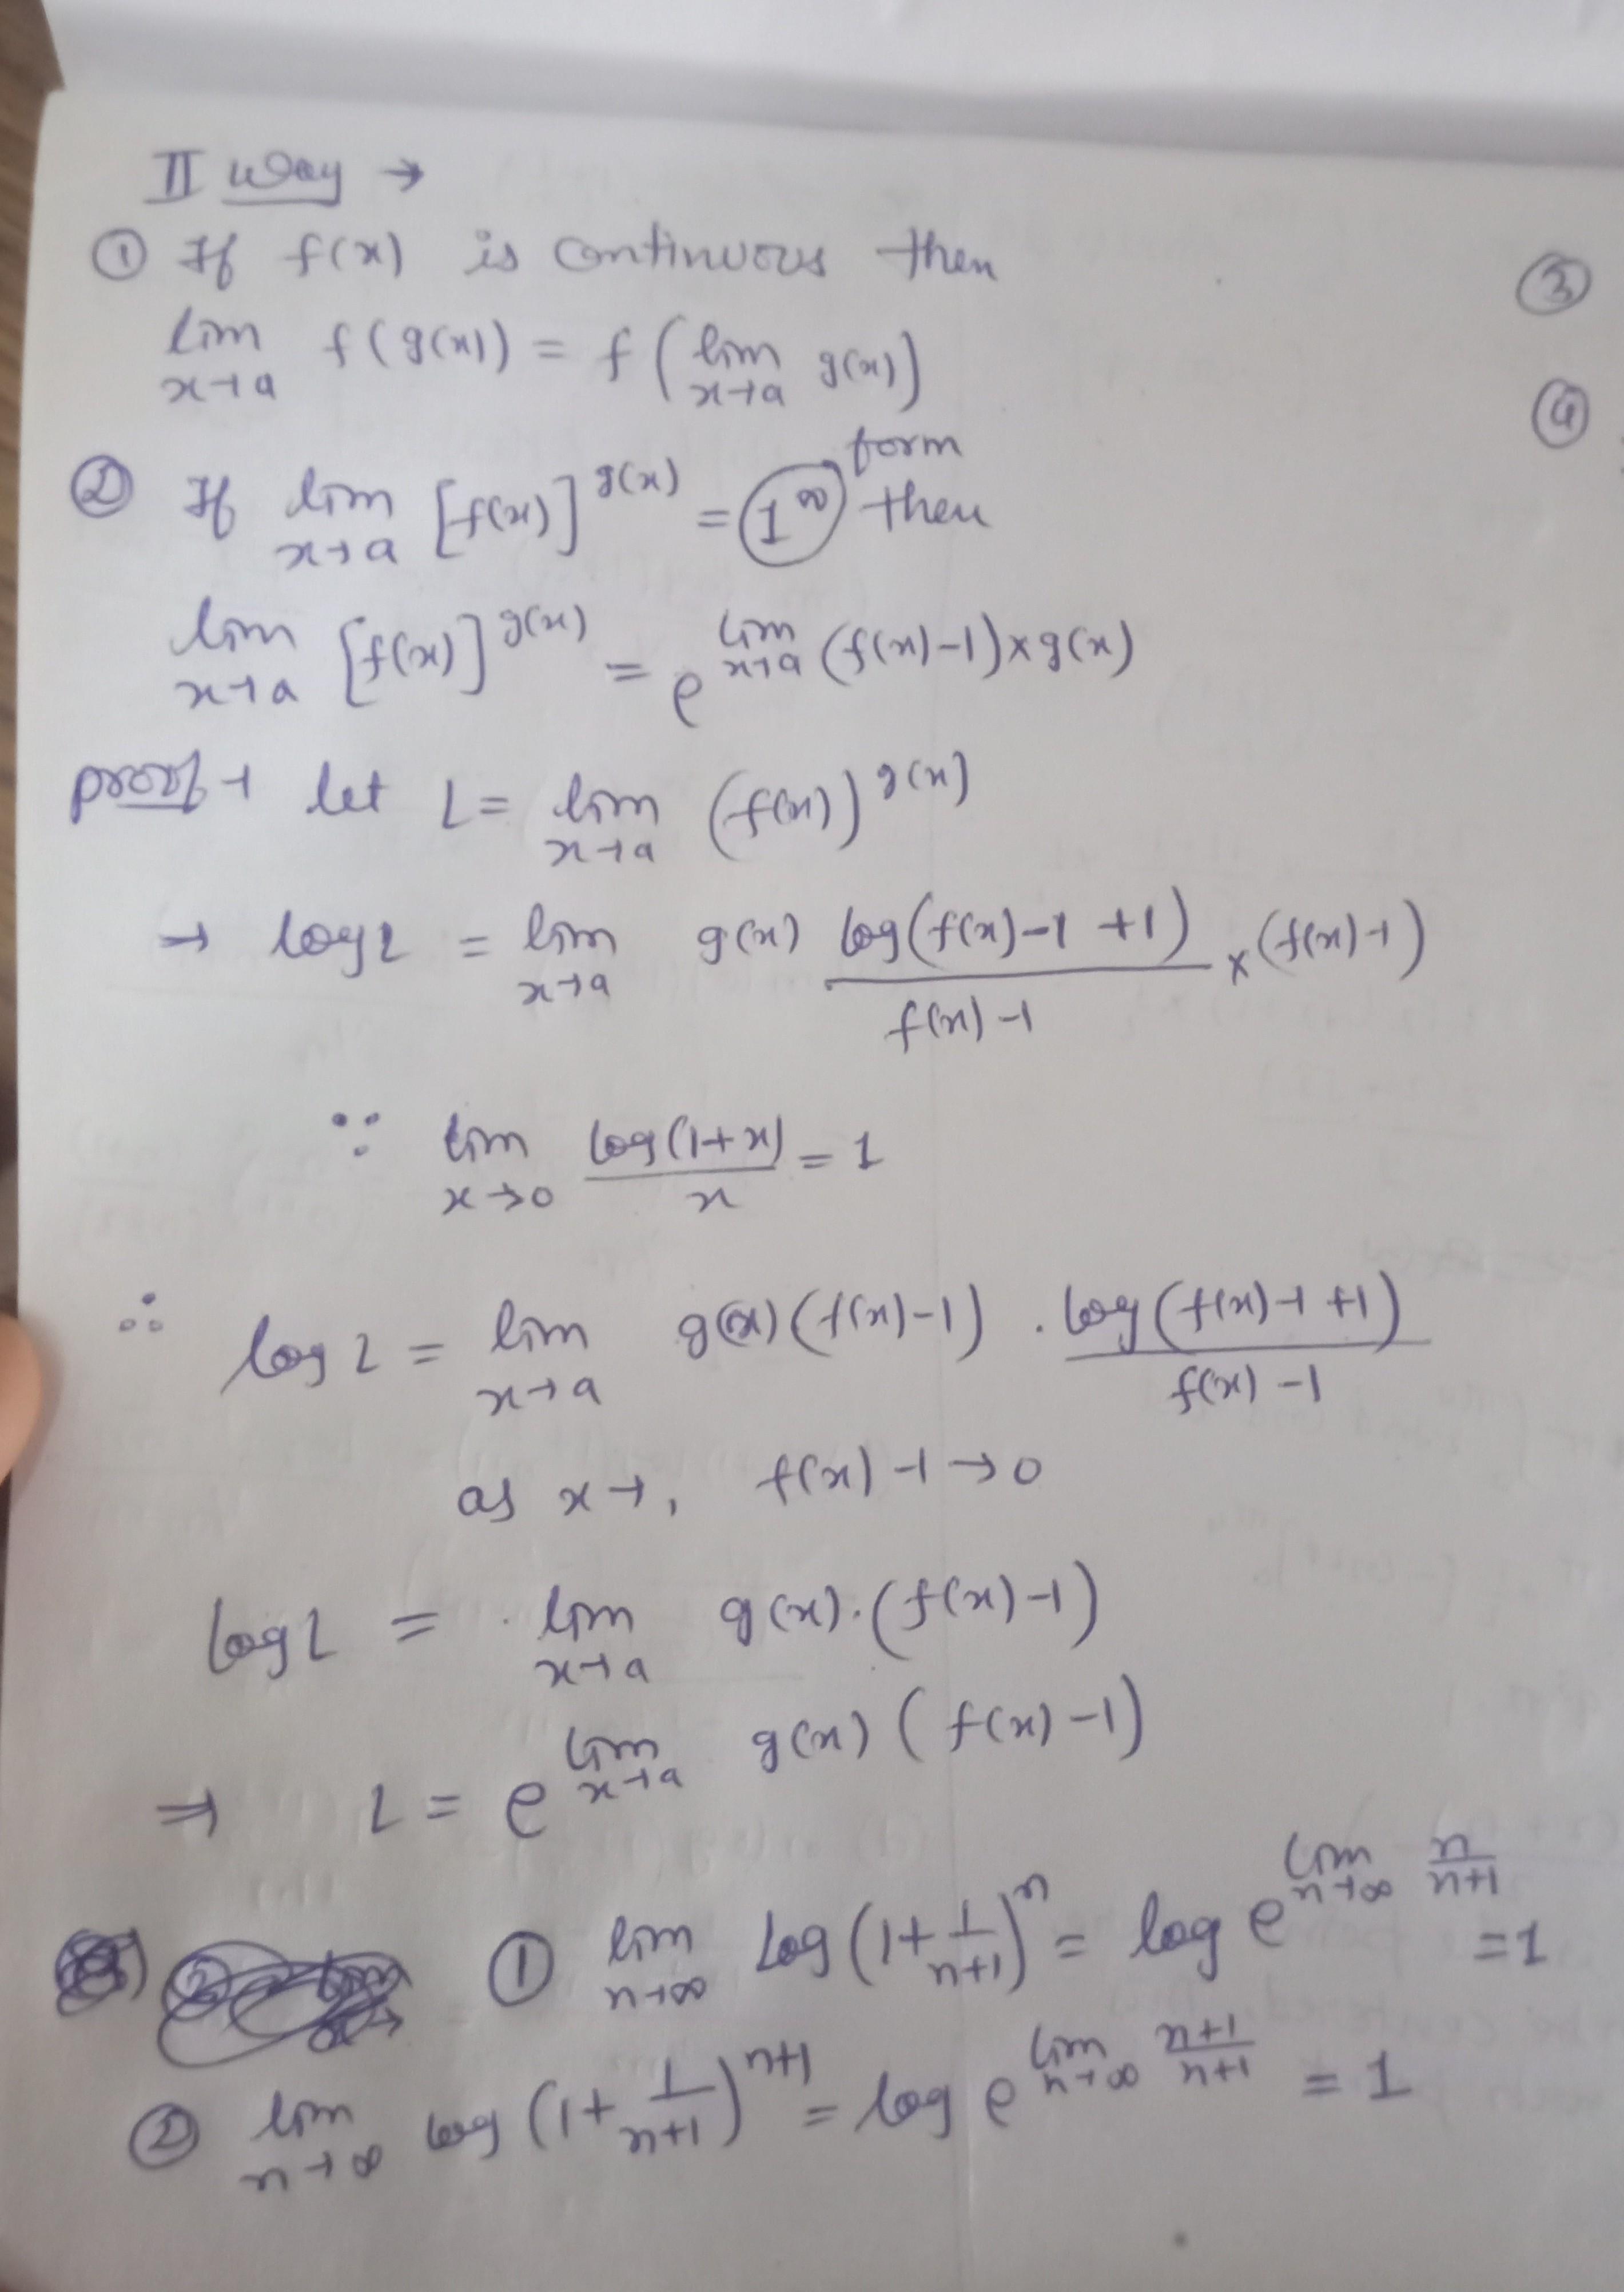 II Way →
① If f(x) is continuous then
lim x→a f(g(x)) = f(lim x→a g(x))
② If lim x→a [f(x)]^g(x) = 1^∞ form then
lim x→a [f(x)]^g(x) = e^lim x→a (f(x)-1)×g(x)
proof → let L = lim x→a (f(x))^g(x)
→ log L = lim x→a g(x) log(f(x)-1+1) / f(x)-1 × (f(x)-1)
∵ lim x→0 log(1+x)/x = 1
∴ log L = lim x→a g(x)(f(x)-1) . log(f(x)-1+1) / f(x)-1
as x→, f(x)-1→0
log L = lim x→a g(x).(f(x)-1)
⇒ L = e^lim x→a g(x)(f(x)-1)
① lim n→∞ log(1+1/n+1)^n = log e^lim n→∞ n/n+1 = 1
② lim n→∞ log(1+1/n+1)^n+1 = log e^lim n→∞ n+1/n+1 = 1
③
④